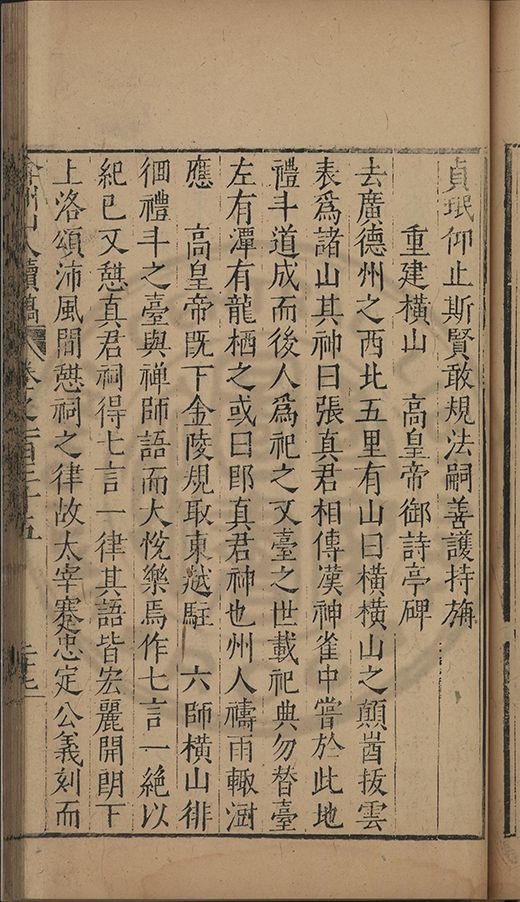 貞珉仰止斯賢敢規法嗣善護持旃
重建橫山 高皇帝御詩亭碑
去廣德州之西北五里有山曰橫橫山之顛酋拔雲
表爲諸山其神曰張真君相傳漢神雀中嘗於此地
禮斗道成而後人爲祀之又臺之世載祀典勿替臺
左有潭有龍栖之或曰卽真君神也州人禱雨輙澍
應 高皇帝既下金陵規取東越駐 六師橫山徘
徊禮斗之臺與禅師語而大悅樂焉作七言一絕以
紀已又憇真君祠得七言一律其語皆宏麗開朗下
上洛頌沛風間憇祠之律故太宰蹇忠定公義刻而
弇州山人續稿 卷之一百三十五 二十七